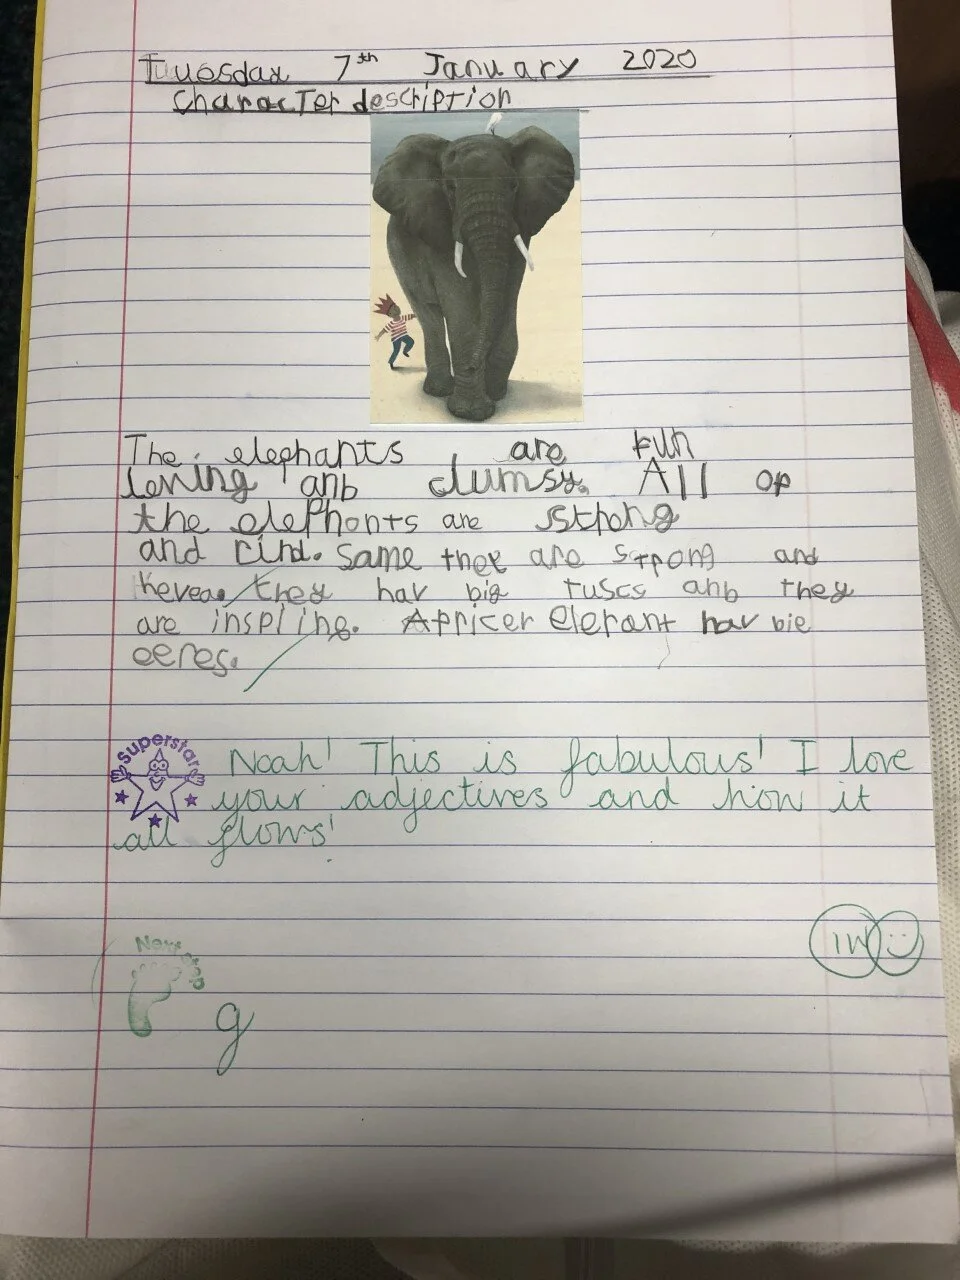 Tuosday 7th January 2020
Character description
The elephants are fun
loving anb clumsy. All of
the elephants are strong
and cind. Some they are strong and
hevea. they hav big tuscs anb they
are inspiing. African elefant hav bie
eeres.
Superstar
Noah! This is fabulous! I love
your adjectives and how it
all flows!
IW
Next Step
g